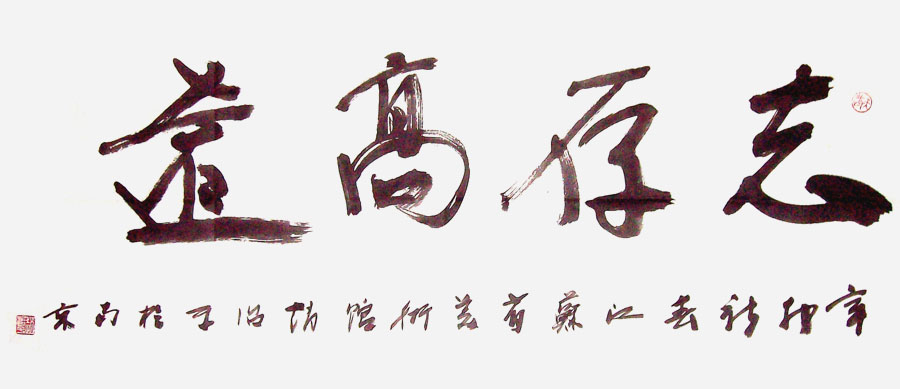 志存高遠
辛卯新春江蘇省美術館於南京